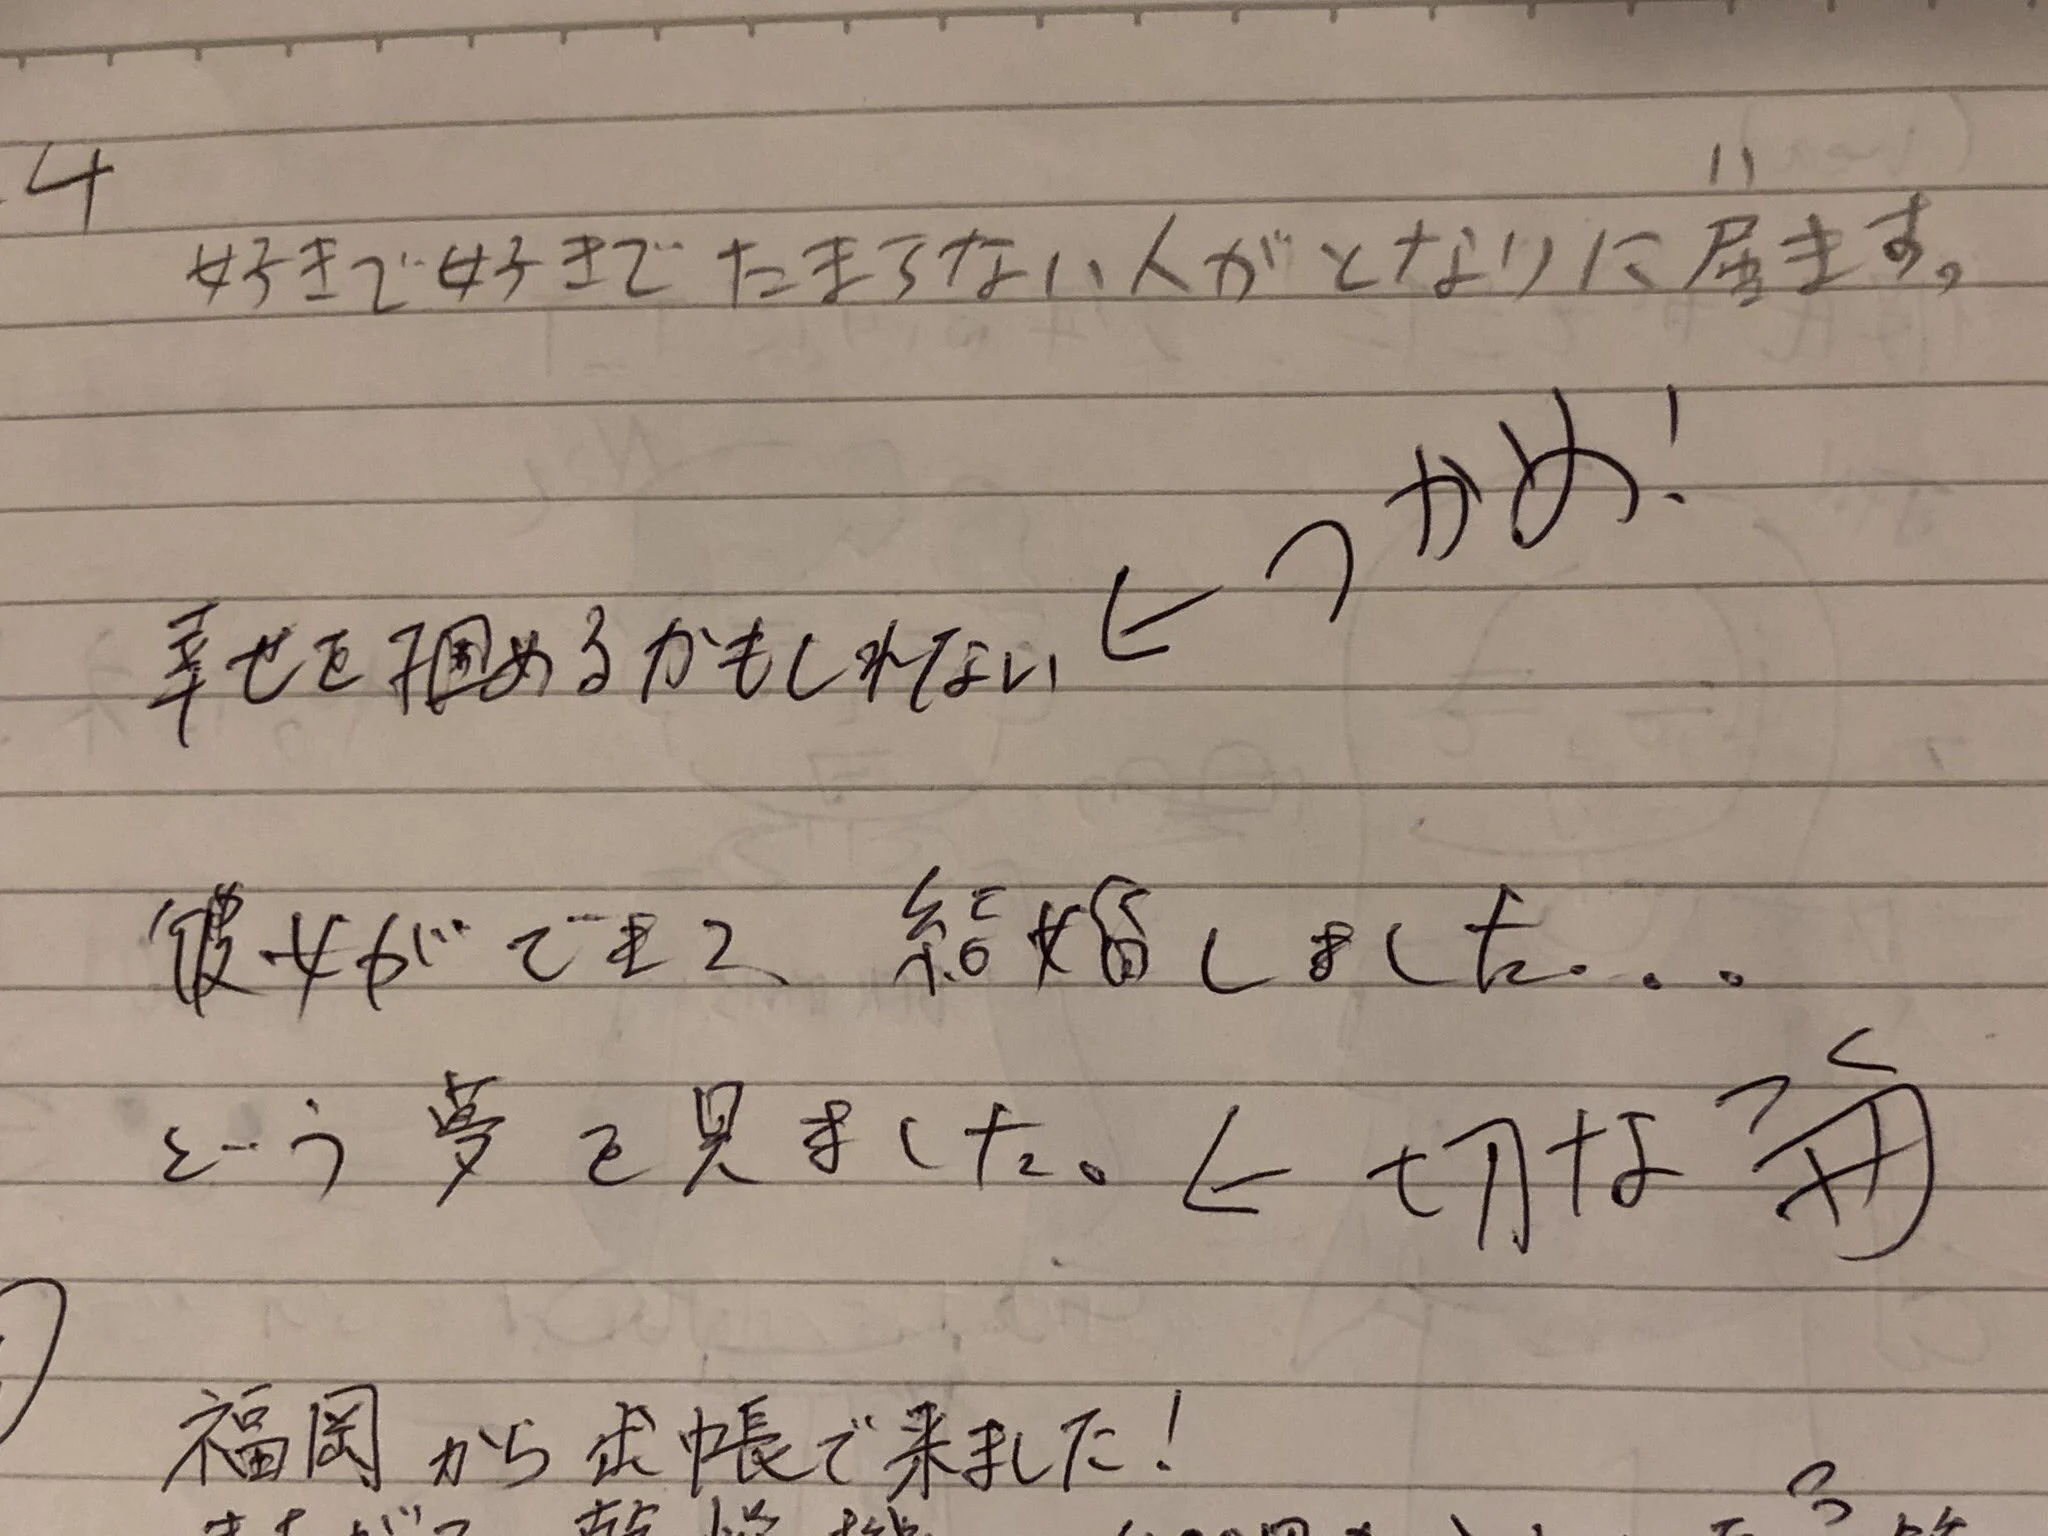 .4
好きで好きでたまらない人がとなりに居ます。
つかめ!
幸せを掴めるかもしれない ←
彼女ができて 結婚しました...
という夢を見ました。 ← 切な
福岡から出帳で来ました!